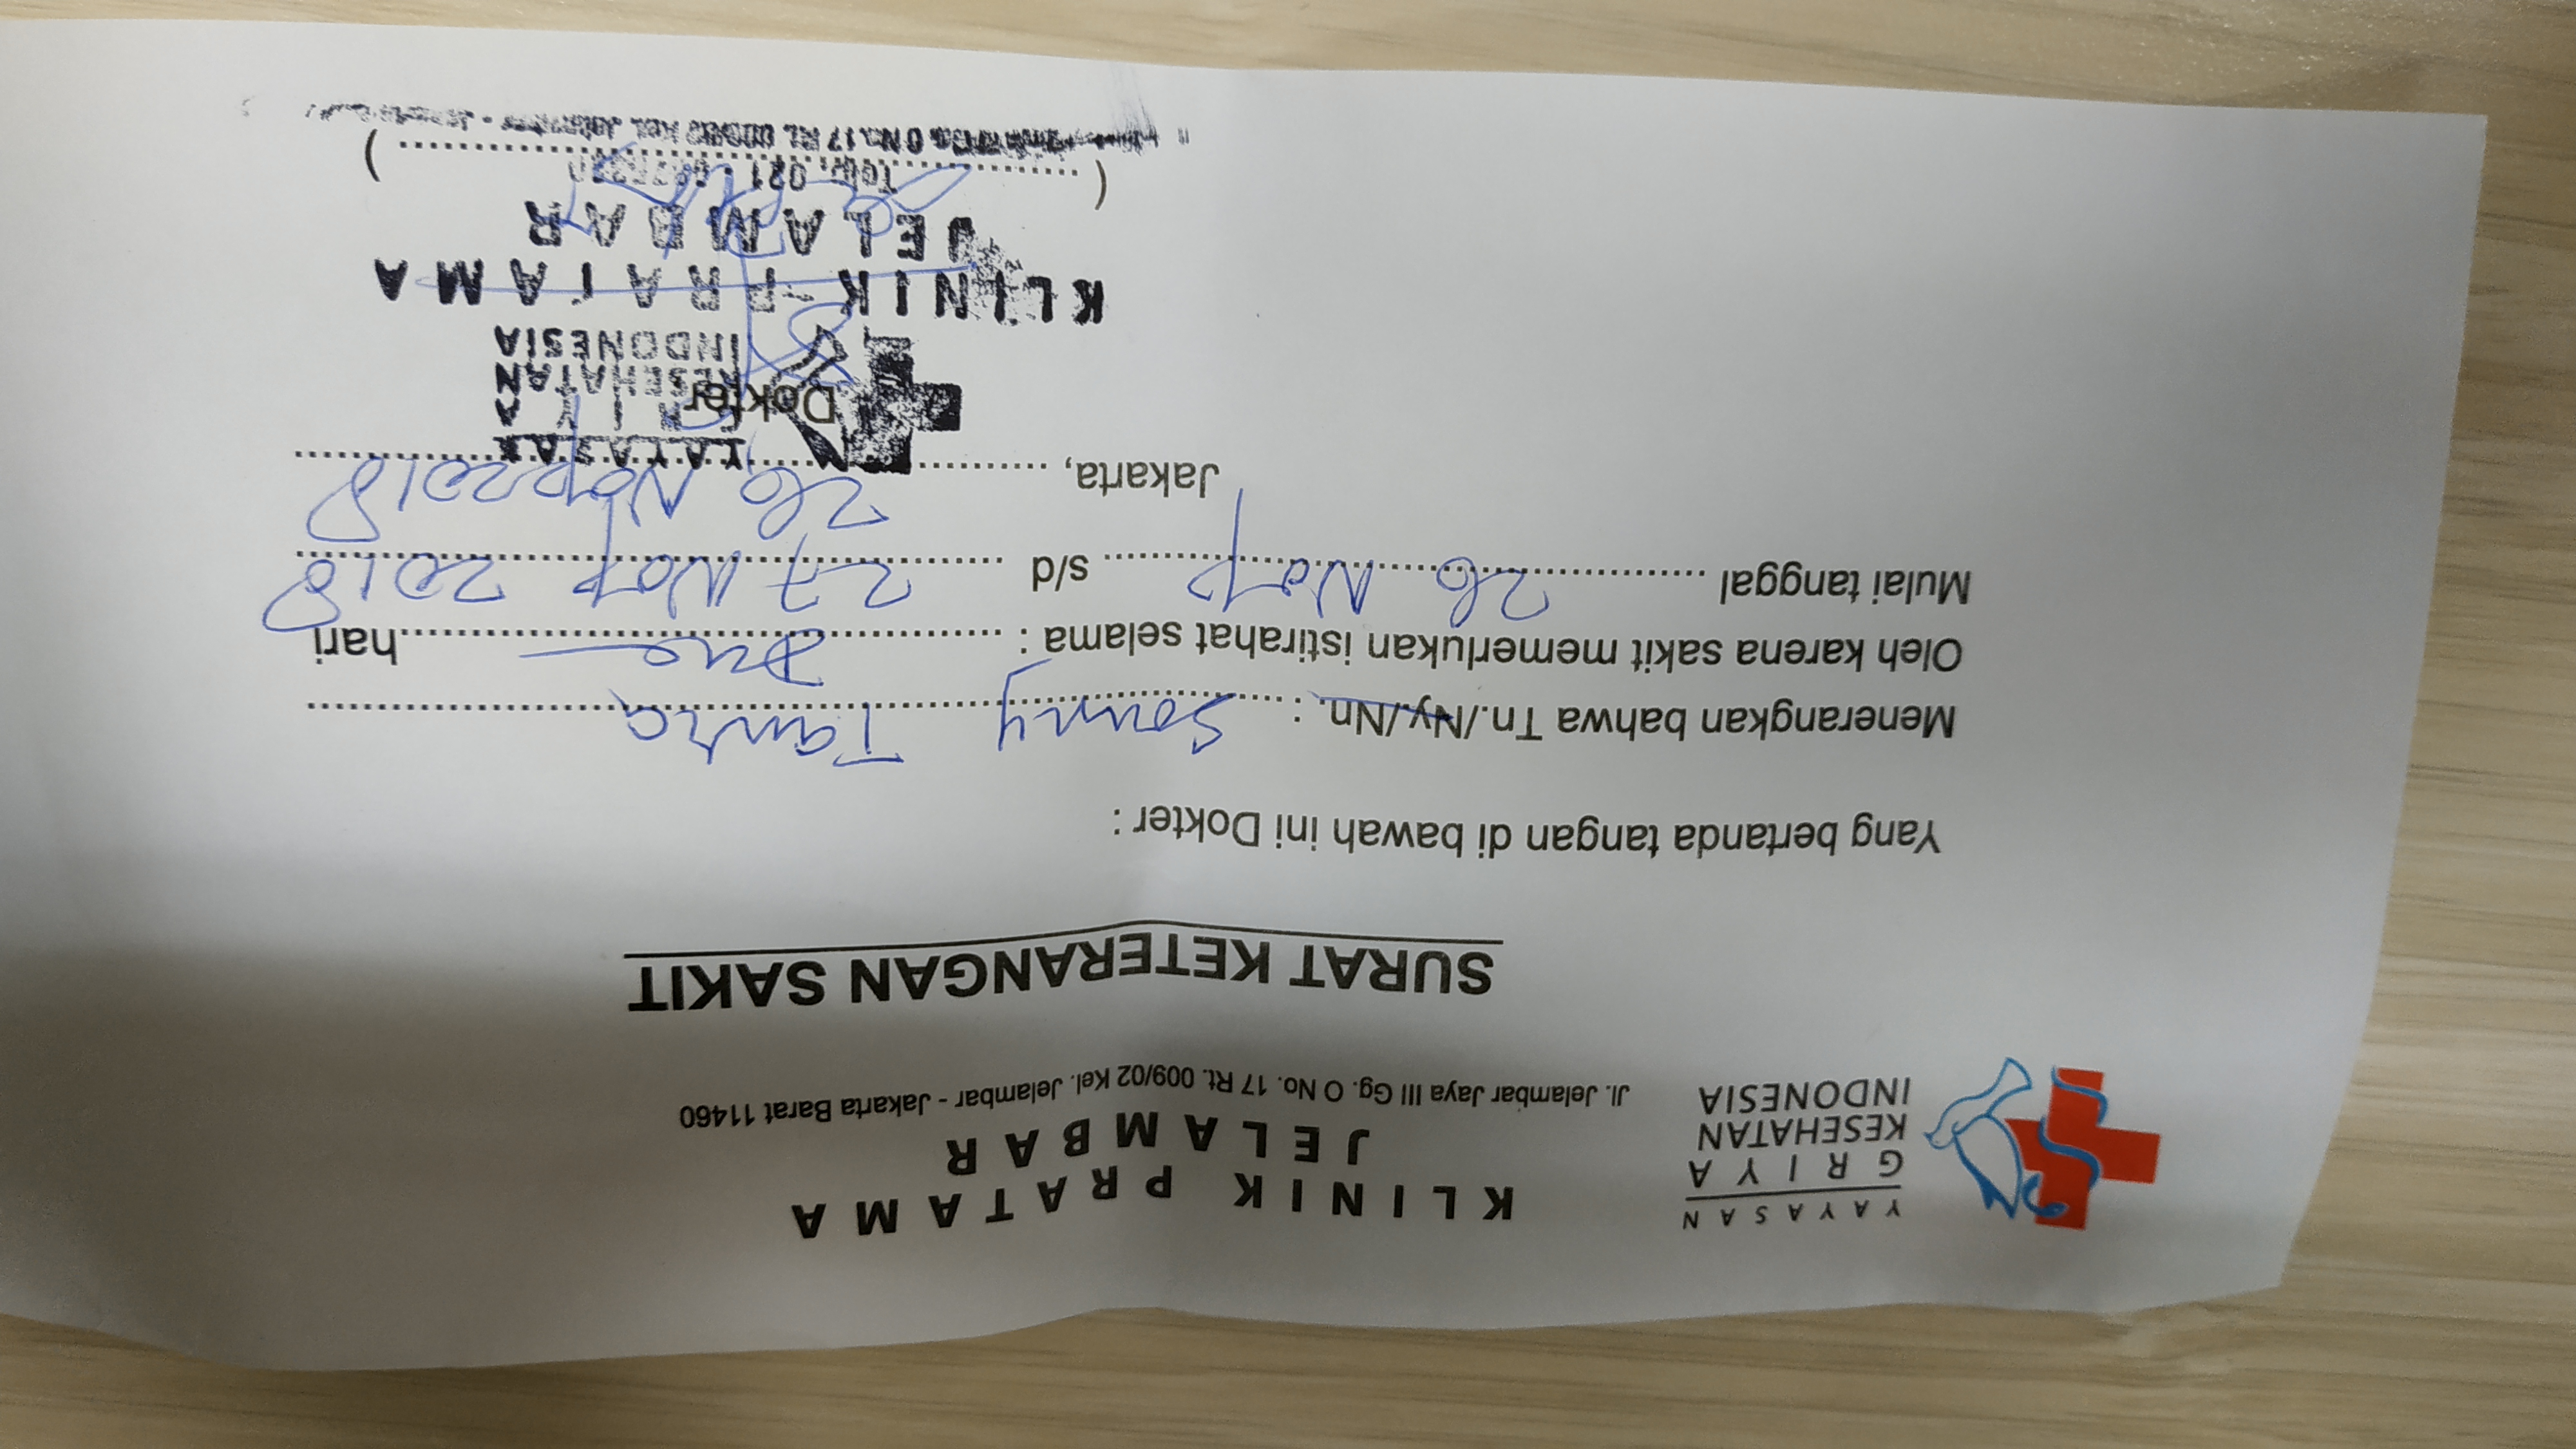 YAYASAN
GRIYA
KESEHATAN
INDONESIA
KLINIK PRATAMA
JELAMBAR
Jl. Jelambar Jaya III Gg. O No. 17 Rt. 009/02 Kel. Jelambar - Jakarta Barat 11460
SURAT KETERANGAN SAKIT
Yang bertanda tangan di bawah ini Dokter :
Menerangkan bahwa Tn./Ny./Nn. : Sonny
Oleh karena sakit memerlukan istirahat selama : Dua hari
Mulai tanggal 26 Nop s/d 27 Nop 2018
Jakarta, 26 Nop 2018
Dokter
YAYASAN
GRIYA
KESEHATAN
INDONESIA
KLINIK PRATAMA
JELAMBAR
Telp. 021
O No.17 Rt.